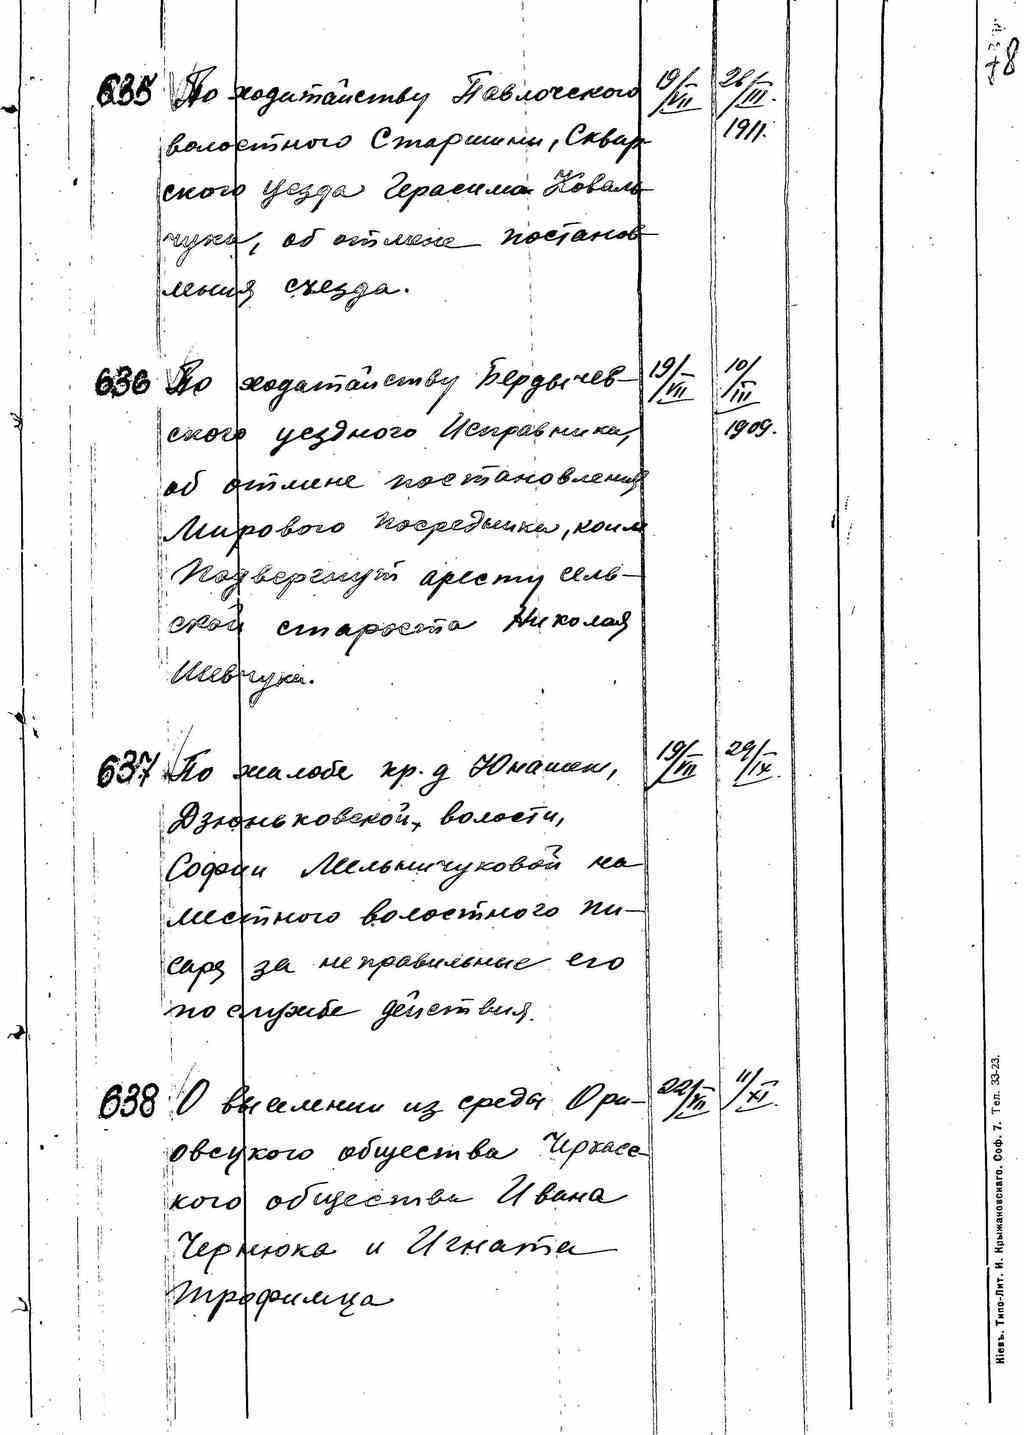 78
635 По ходатайству Паволочского 19/VII 26/III.
волостного Старшины, Сквир- 1911.
ского уезда Герасима Коваль-
чука, об отмене постанов-
ления съезда.
636 По ходатайству Бердычев- 19/VII 10/III
ского уездного Исправника, 1909.
об отмене постановления
Мирового посредника, коим
подвергнут аресту сель-
ской староста Николай
Шевчука.
637 По жалобе кр. д Юнашек, 19/VII 29/IX.
Дзюньковской, волости,
Софии Мельничуковой на
местного волостного пи-
саря за неправильные его
по службе действия.
638 О выселении из среды Ори- 22/VII 11/XI.
овецкого общества Черкасс-
кого общества Ивана
Чернюка и Игната
Трофимца
Кіевъ. Типо-Лит. И. Крыжановскаго. Соф. 7. Тел. 33-23.